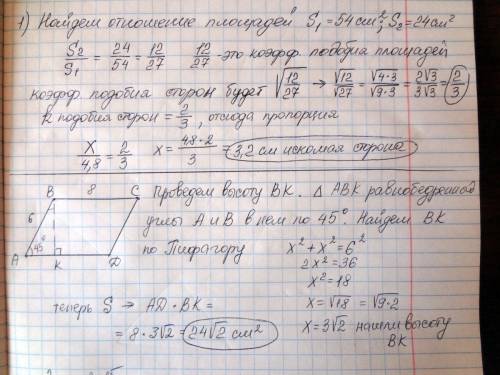 1) Найдем отношение площадей S₁ = 54 см²; S₂ = 24 см²
S₂/S₁ = 24/54 = 12/27   12/27 - это коэфф. подобия площадей
коэфф. подобия сторон будет √(12/27) → √12/√27 = √(4·3)/√(9·3) = 2√3/3√3 = 2/3
k подобия сторон = 2/3, отсюда пропорция
x/4,8 = 2/3   x = 4,8·2/3 = 3,2 см искомая сторона
B 8 C
6
A 45° K D
Проведем высоту BK. △ ABK равнобедренный
углы A и B в нем по 45°. Найдем BK
по Пифагору
x² + x² = 6²
2x² = 36
x² = 18
x = √18 = √(9·2)
x = 3√2 нашли высоту
BK
теперь S → AD · BK =
= 8 · 3√2 = 24√2 см²